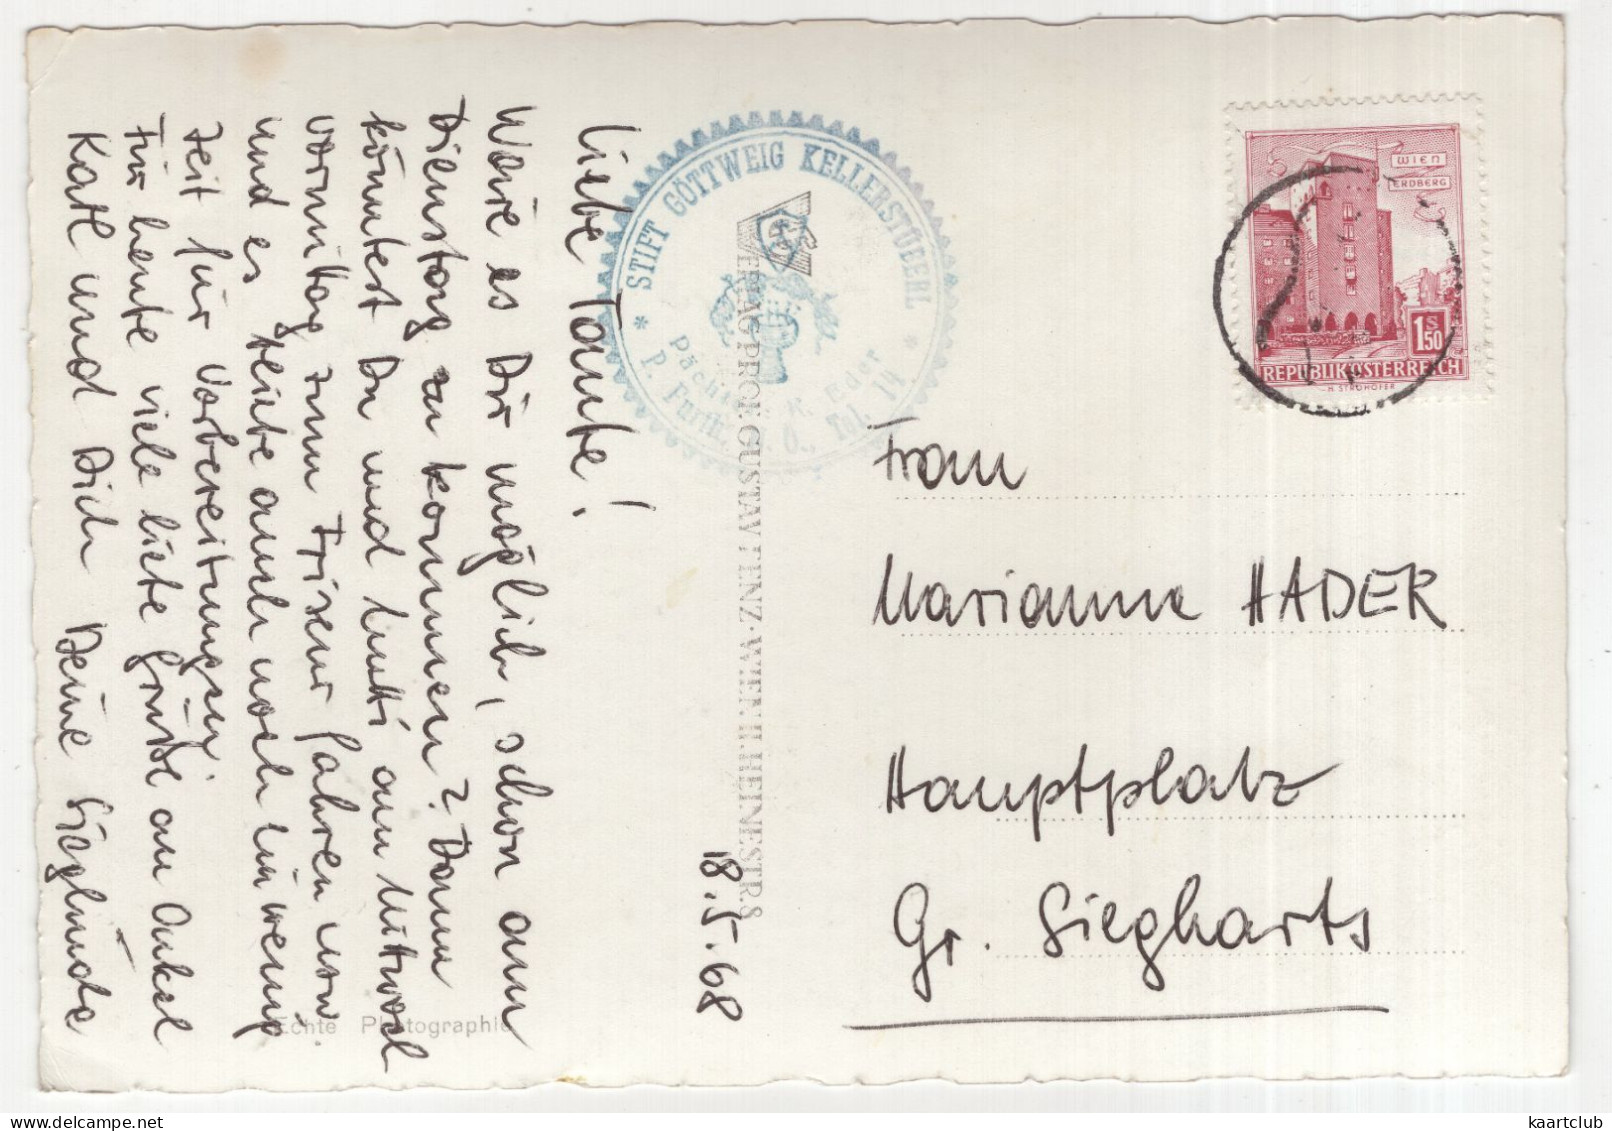 Liebe Tante!
Wäre es Dir möglich, schon am
Dienstag zu kommen? Dann
könntest Du und Mutti am Mittwoch
vormittag zum Friseur fahren usw.
und es bliebe auch noch ein wenig
Zeit für Vorbereitungen.
Für heute viele liebe Grüße an Onkel
Karl und Dich Deine Sieglinde
18.5.68
Echte Photographie
* STIFT GÖTTWEIG KELLERSTÜBERL *
Eder
P. Furth Tel. 14
VERLAG PROF. GUSTAV FENZ, WIEN II. HEINESTR. 8
WIEN
ERDBERG
1 S 50
REPUBLIK ÖSTERREICH
H. STROHOFER
Frau
Marianne HADER
Hauptplatz
Gr. Siegharts
kaartclub